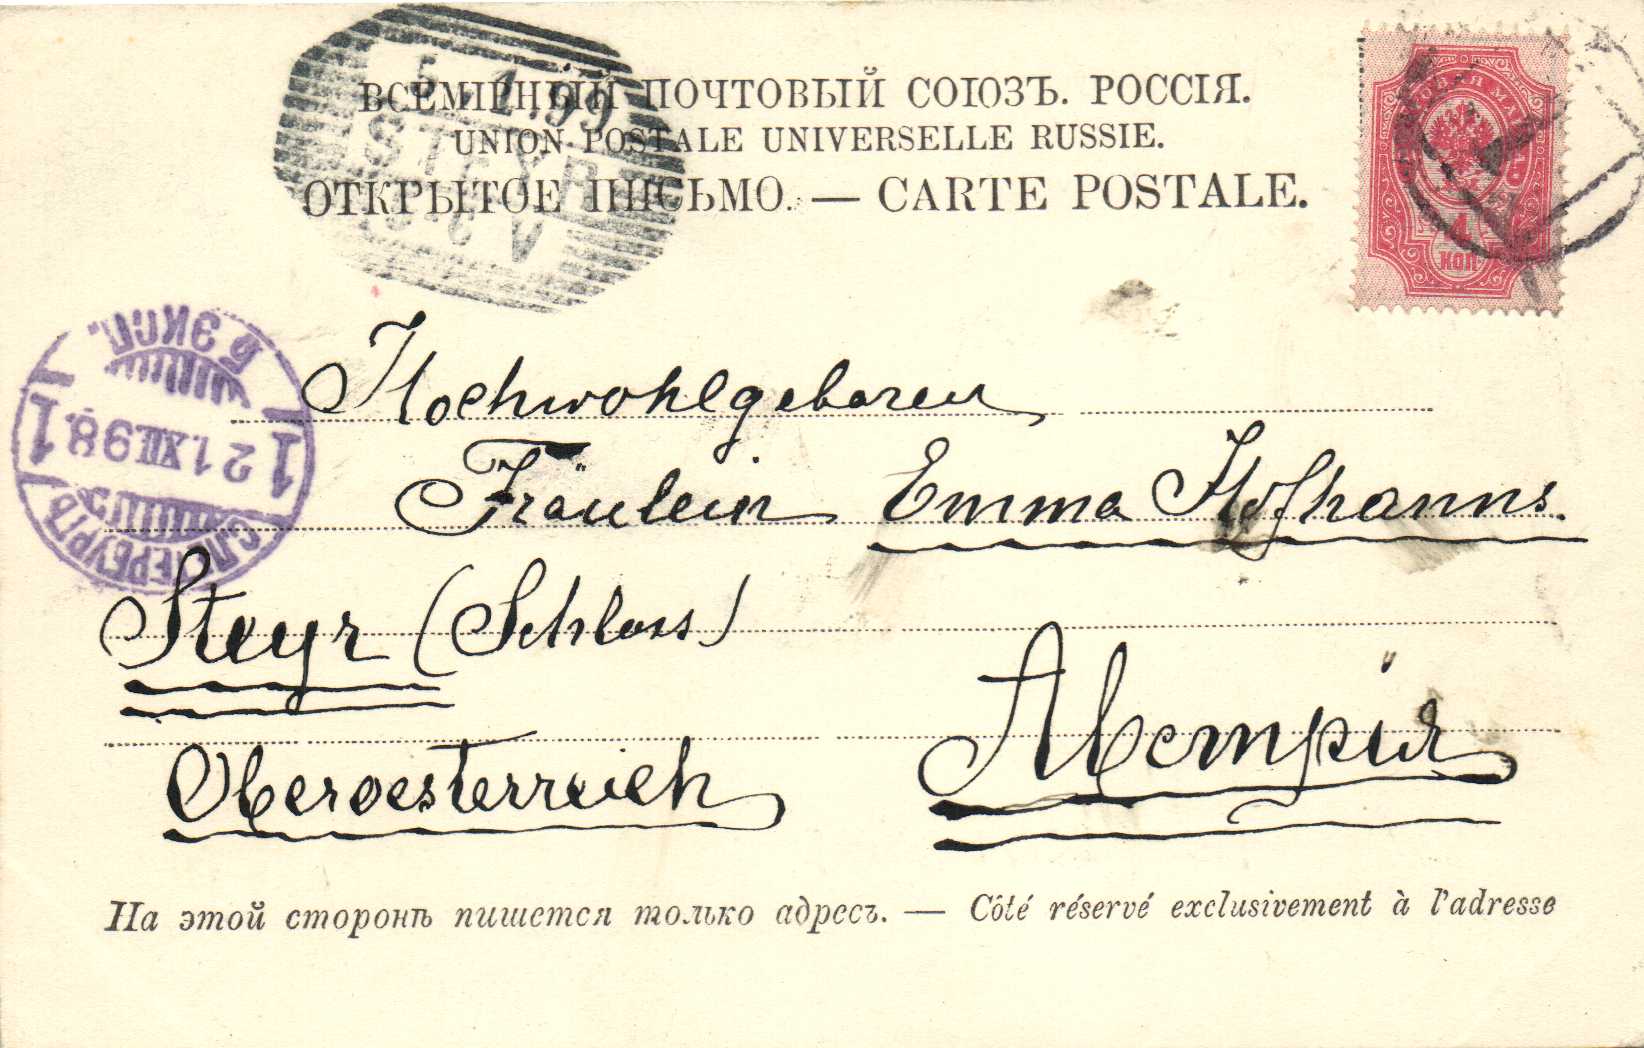 ВСЕМІРНЫЙ ПОЧТОВЫЙ СОЮЗЪ. РОССІЯ.
UNION POSTALE UNIVERSELLE RUSSIE.
ОТКРЫТОЕ ПИСЬМО. — CARTE POSTALE.
5.1.99
STEYR
4 КОП
Б ЭКСП.
1 21.XII.98. 1
С.ПЕТЕРБУРГЪ
Hochwohlgeboren
Fräulein Emma Hofhanns.
Steyr (Schloss)
Oberoesterreich
Австрія
На этой сторонѣ пишется только адресъ. — Côté réservé exclusivement à l'adresse